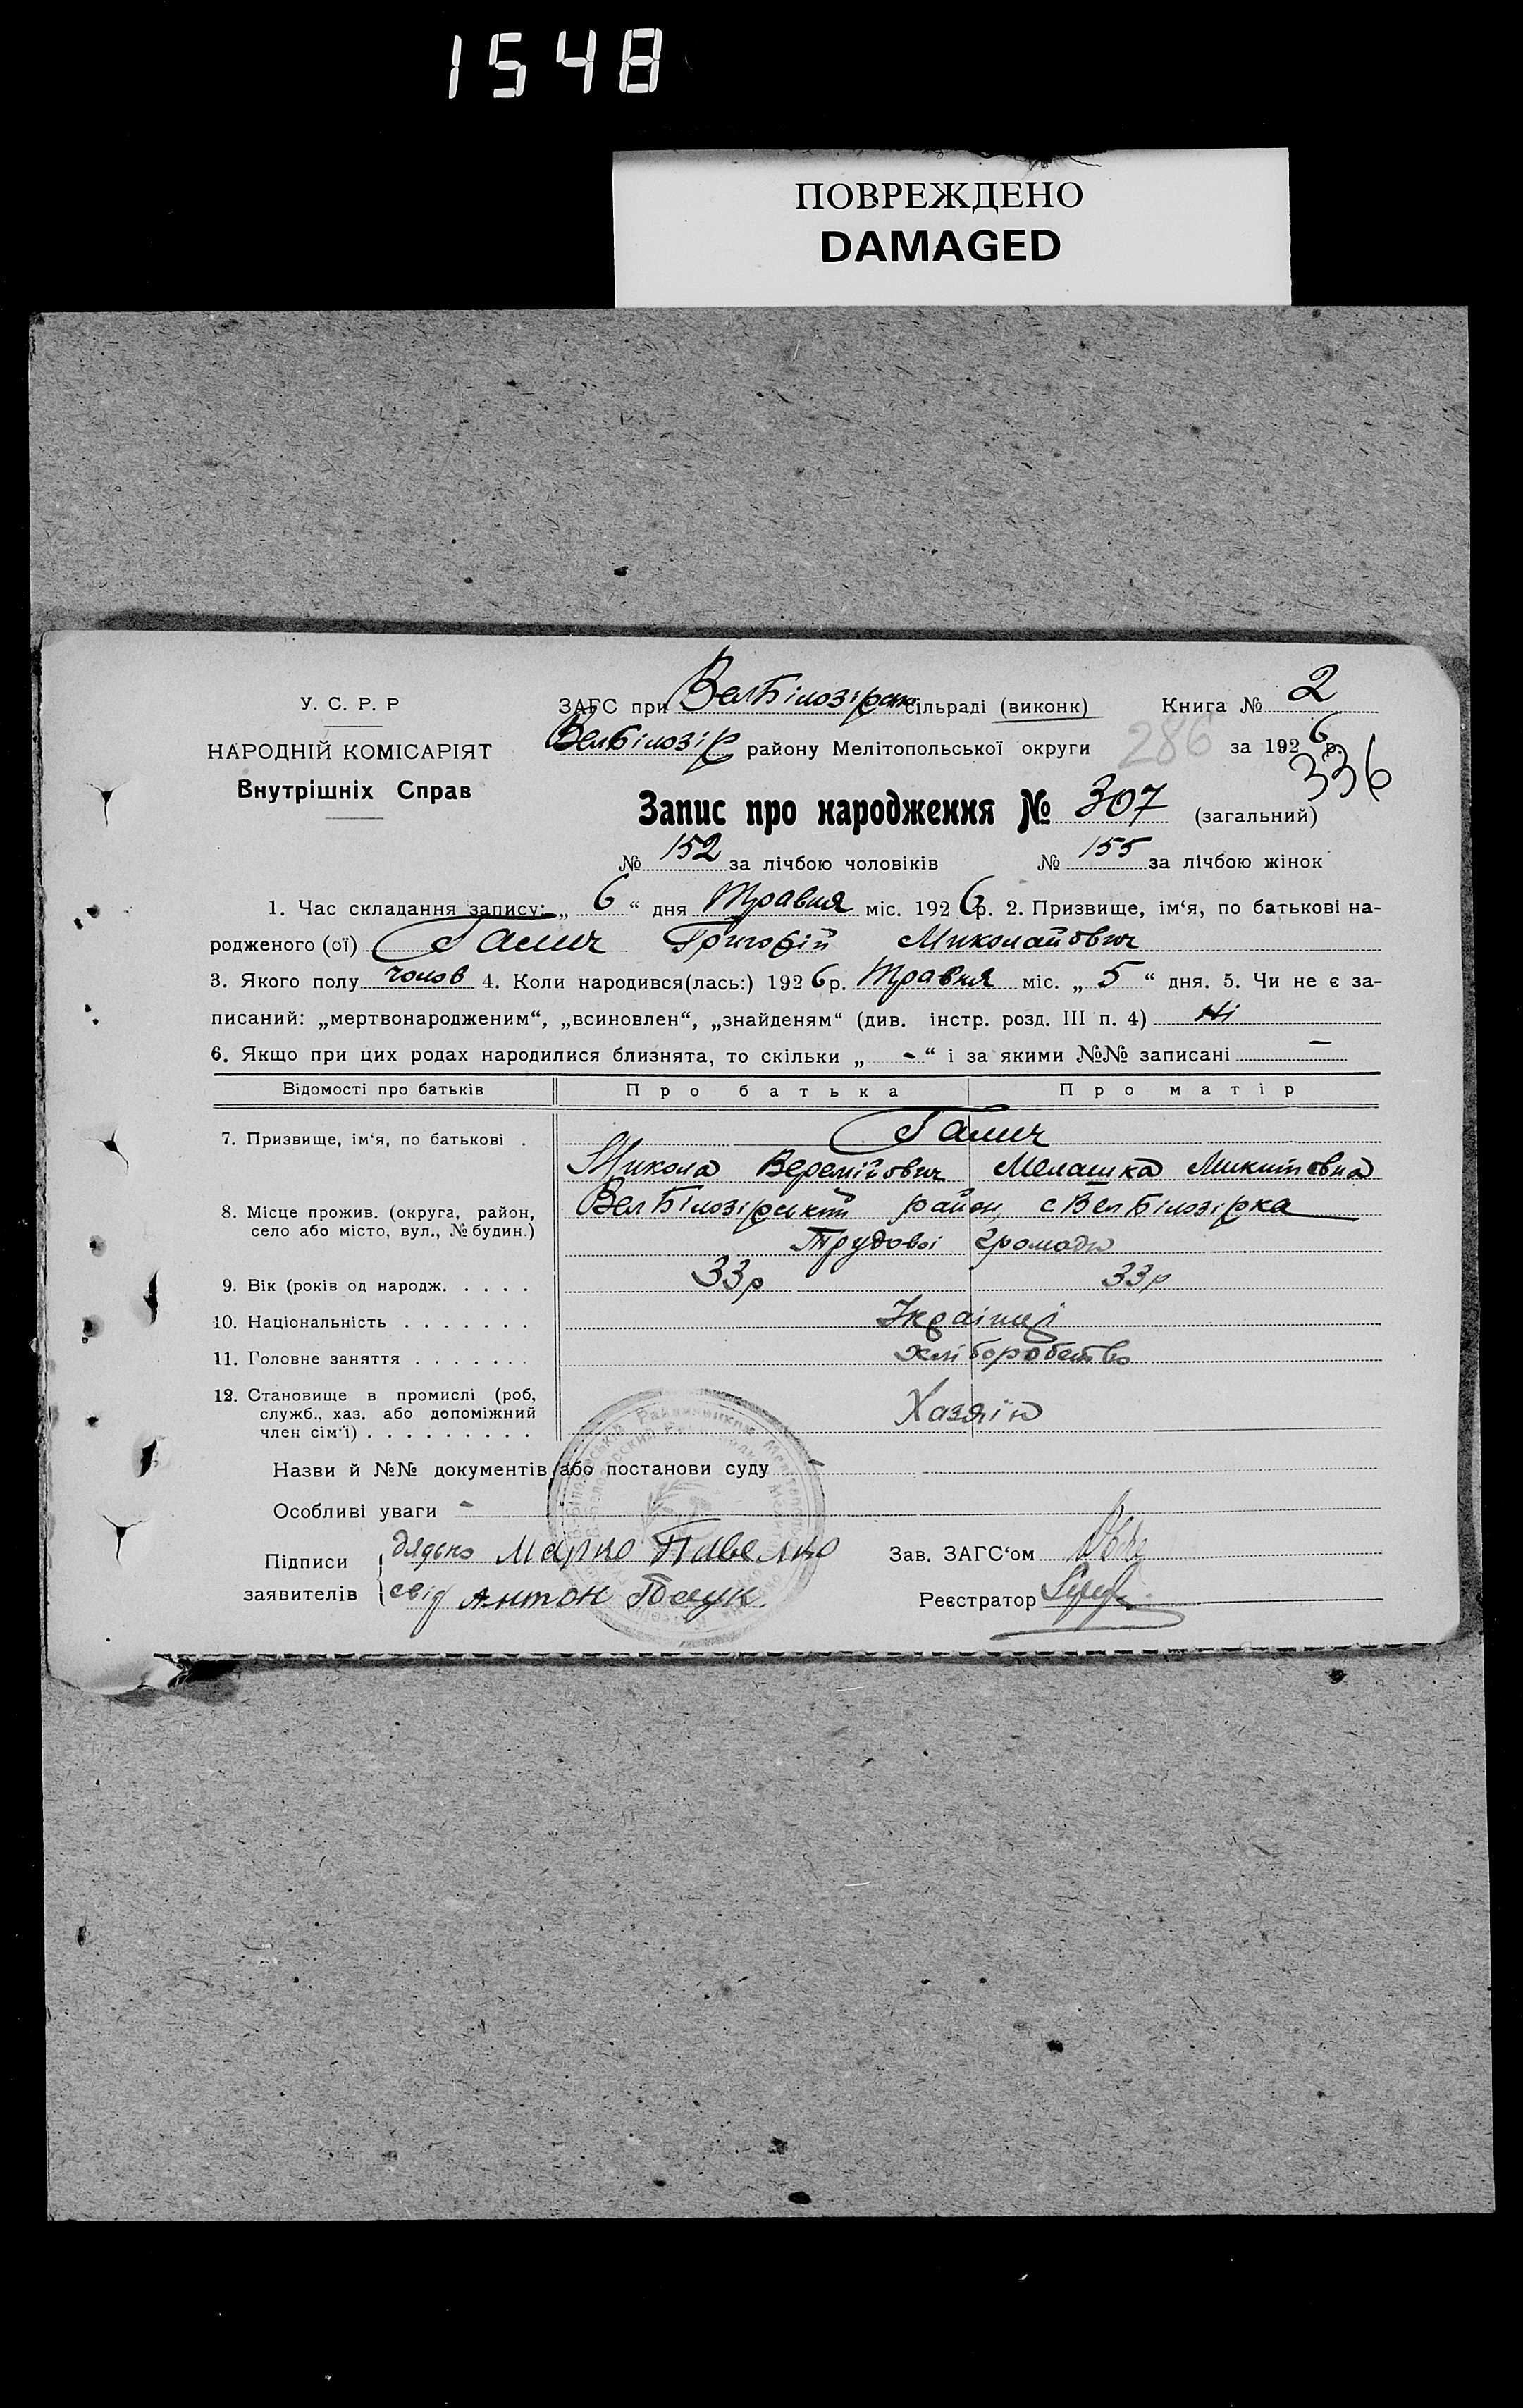 1548
ПОВРЕЖДЕНО
DAMAGED
У. С. Р. Р
НАРОДНІЙ КОМІСАРІЯТ
Внутрішніх Справ
ЗАГС при ВелБілозірськ сільраді (виконк) Книга № 2
ВелБілозір району Мелітопольської округи 286 за 1926 р.
336
Запис про народження № 307 (загальний)
№ 152 за лічбою чоловіків № 155 за лічбою жінок
1. Час складання запису: „ 6 “ дня Травня міс. 1926 р. 2. Призвище, ім‘я, по батькові на-
родженого (ої) Галич Григорій Миколайович
3. Якого полу чолов 4. Коли народився(лась:) 1926 р. Травня міс. „ 5 “ дня. 5. Чи не є за-
писаний: „мертвонародженим“, „всиновлен“, „знайденям“ (див. інстр. розд. III п. 4) Ні
6. Якщо при цих родах народилися близнята, то скільки „ - “ і за якими №№ записані —
Відомості про батьків Про батька Про матір
7. Призвище, ім‘я, по батькові . Галич
Микола Веремійович Мелашка Микитовна
8. Місце прожив. (округа, район, село або місто, вул., № будин.) ВелБілозірський район, с ВелБілозірка
Трудової громади
9. Вік (років од народж. . . . . 33р 33р
10. Національність . . . . . . . Українці
11. Головне заняття . . . . . . . хліборобство
12. Становище в промислі (роб,
служб., хаз. або допоміжний Хазяїн
член сім‘ї) . . . . . . . . .
Назви й №№ документів або постанови суду -
Особливі уваги -
Підписи дядько Марко Павелко Зав. ЗАГС‘ом
заявителів свід Антон Реєстратор